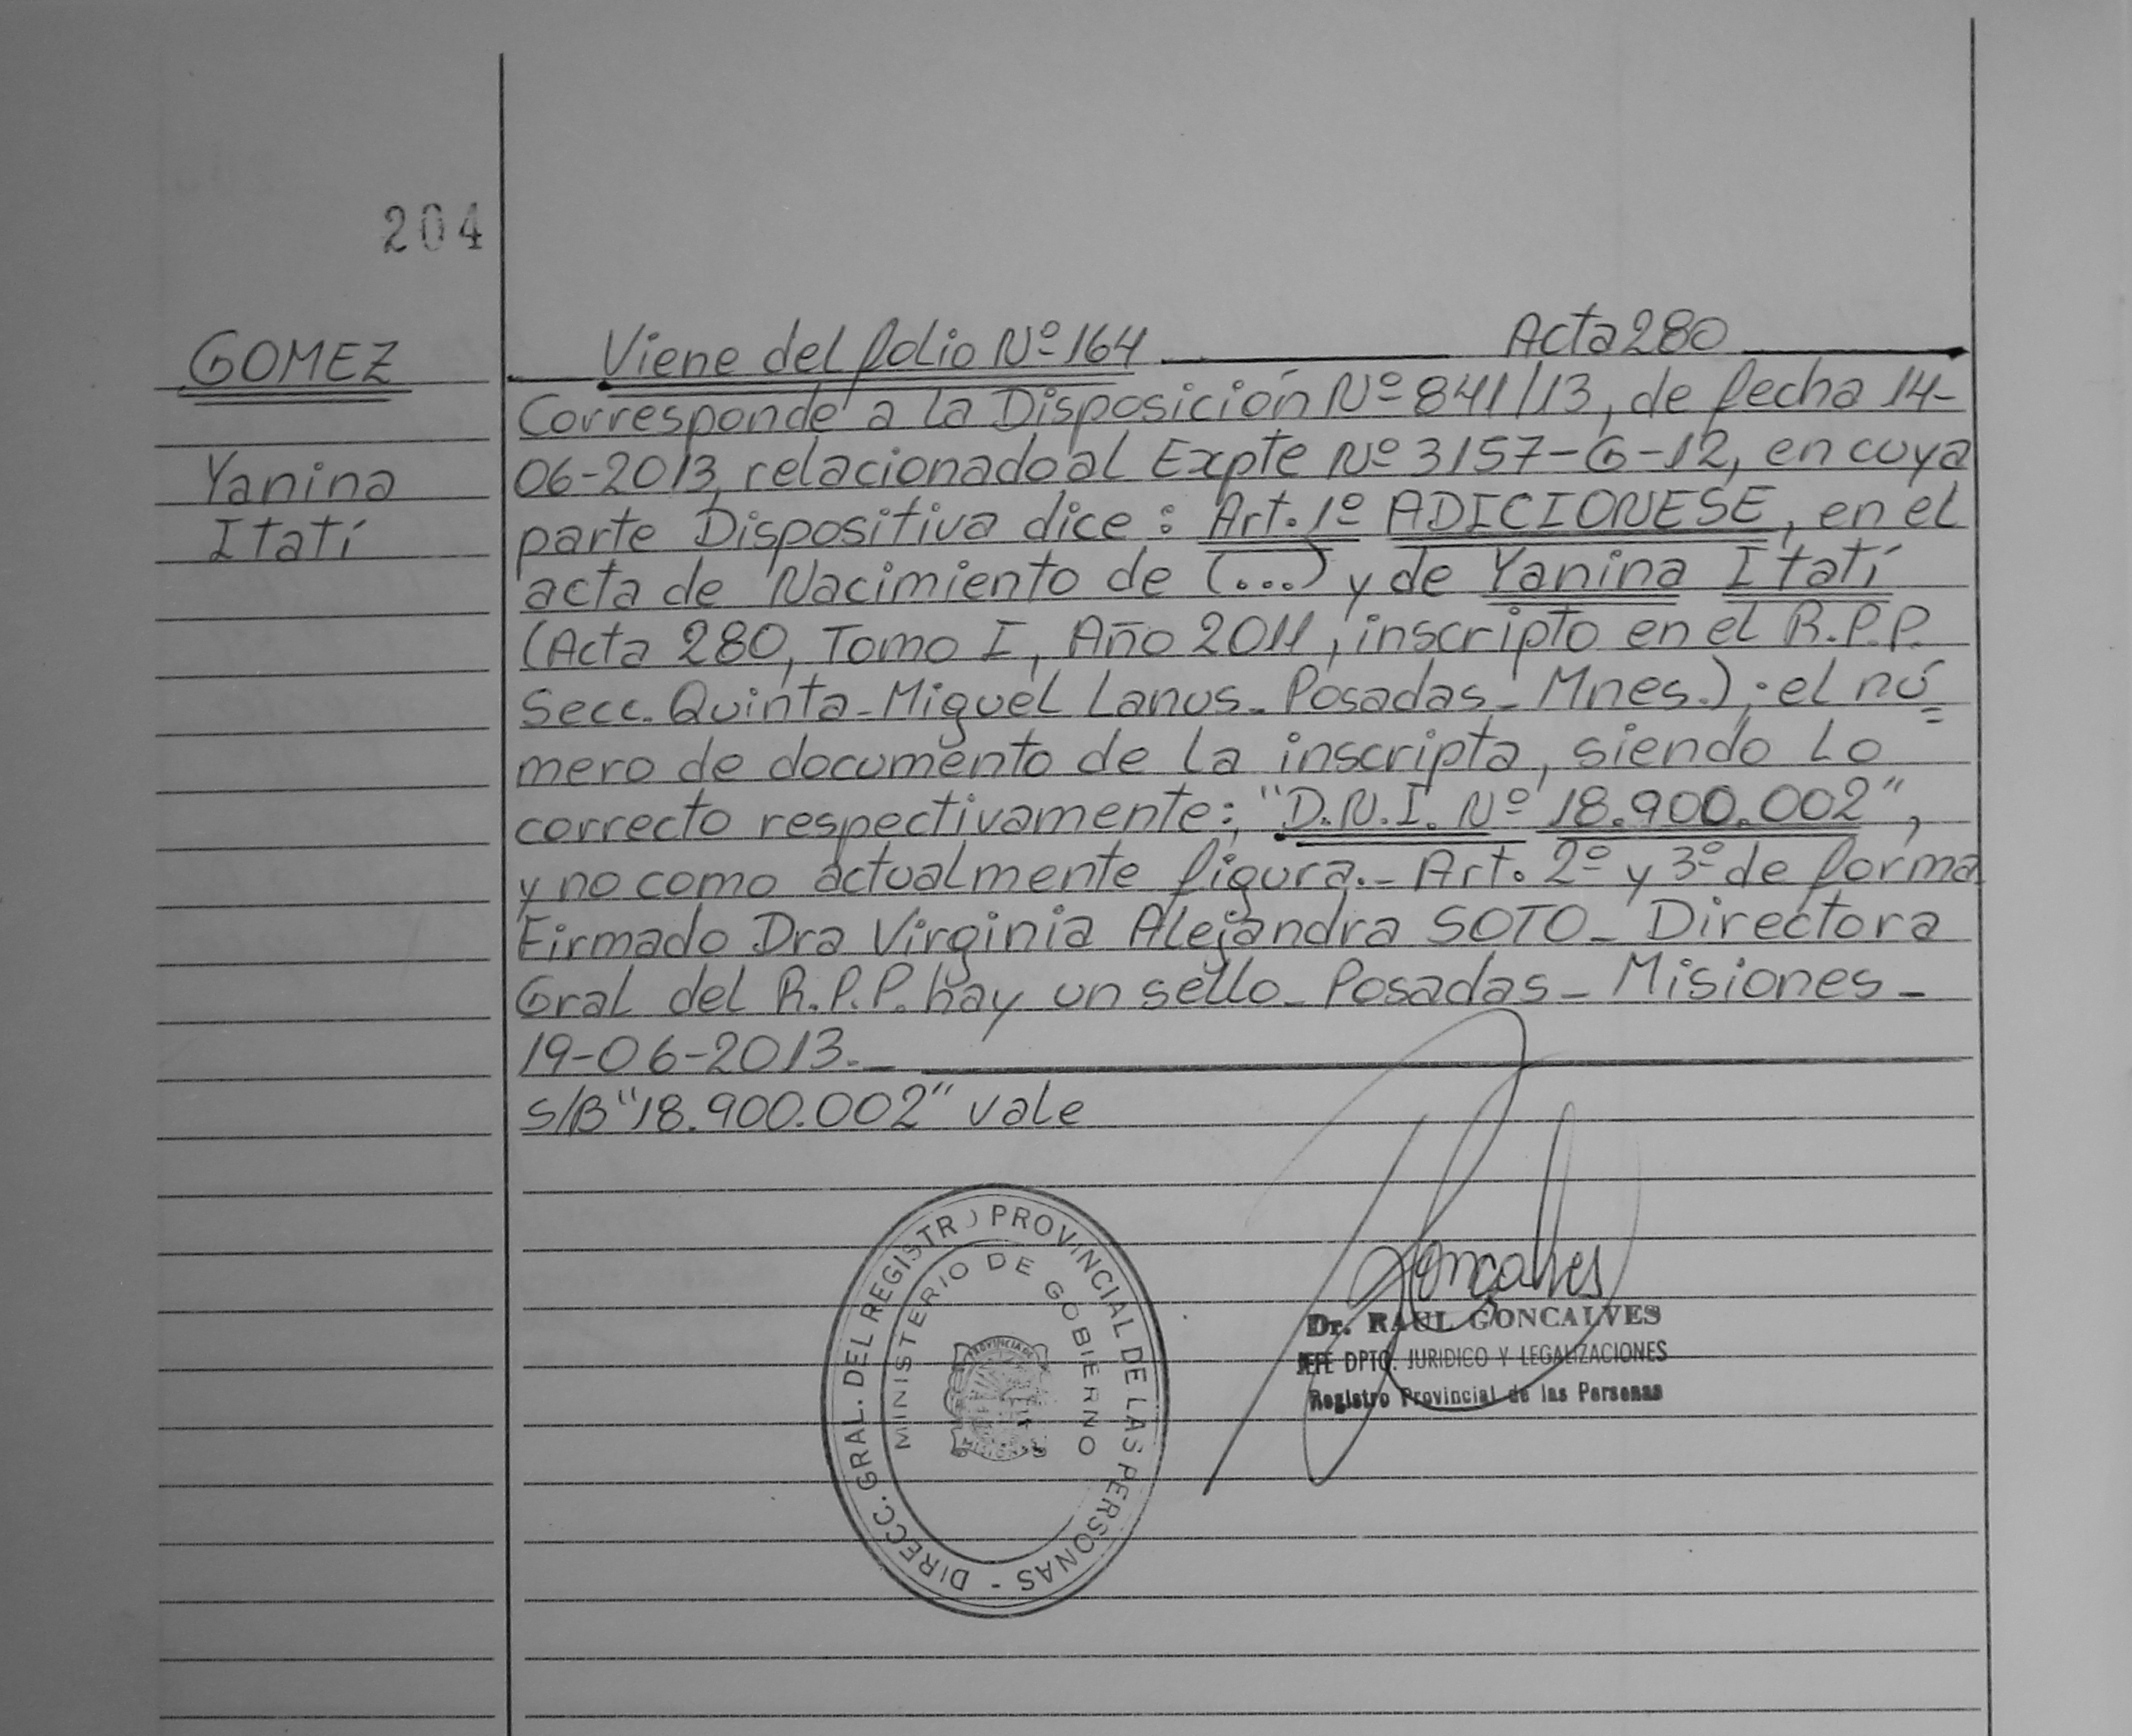 204
GOMEZ
Yanina
Itatí
Viene del folio Nº 164 Acta 280
Corresponde a la Disposición Nº 841/13, de fecha 14-
06-2013, relacionado al Expte Nº 3157-G-12, en cuya
parte Dispositiva dice: Art. 1º ADICIONESE, en el
acta de Nacimiento de (...) y de Yanina Itatí
(Acta 280, Tomo I, Año 2011, inscripto en el R.P.P.
Secc. Quinta-Miguel Lanus-Posadas-Mnes.); el nú=
mero de documento de la inscripta, siendo lo
correcto respectivamente: "D.N.I. Nº 18.900.002",
y no como actualmente figura.- Art. 2º y 3º de forma
Firmado Dra Virginia Alejandra SOTO- Directora
Gral del R.P.P. hay un sello- Posadas- Misiones-
19-06-2013.-
S/B "18.900.002" vale
DIRECC. GRAL. DEL REGISTRO PROVINCIAL DE LAS PERSONAS -
MINISTERIO DE GOBIERNO
PROVINCIA DE
MISIONES
Gonçalves
Dr. RAUL GONCALVES
JEFE DPTO. JURIDICO Y LEGALIZACIONES
Registro Provincial de las Personas